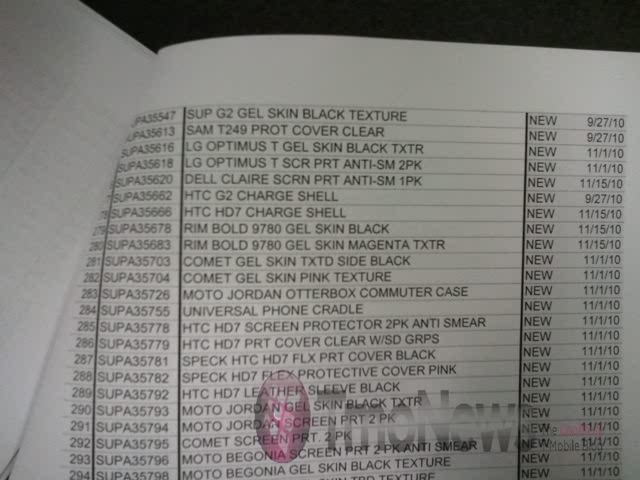 SUPA35547 SUP G2 GEL SKIN BLACK TEXTURE NEW 9/27/10
SUPA35613 SAM T249 PROT COVER CLEAR NEW 9/27/10
SUPA35616 LG OPTIMUS T GEL SKIN BLACK TXTR NEW 11/1/10
SUPA35618 LG OPTIMUS T SCR PRT ANTI-SM 2PK NEW 11/1/10
SUPA35620 DELL CLAIRE SCRN PRT ANTI-SM 1PK NEW 11/15/10
SUPA35662 HTC G2 CHARGE SHELL NEW 9/27/10
SUPA35666 HTC HD7 CHARGE SHELL NEW 11/15/10
SUPA35678 RIM BOLD 9780 GEL SKIN BLACK NEW 11/15/10
280 SUPA35683 RIM BOLD 9780 GEL SKIN MAGENTA TXTR NEW 11/15/10
281 SUPA35703 COMET GEL SKIN TXTD SIDE BLACK NEW 11/1/10
282 SUPA35704 COMET GEL SKIN PINK TEXTURE NEW 11/1/10
283 SUPA35726 MOTO JORDAN OTTERBOX COMMUTER CASE NEW 11/1/10
284 SUPA35755 UNIVERSAL PHONE CRADLE NEW 11/1/10
285 SUPA35778 HTC HD7 SCREEN PROTECTOR 2PK ANTI SMEAR NEW 11/1/10
286 SUPA35779 HTC HD7 PRT COVER CLEAR W/SD GRPS NEW 11/1/10
287 SUPA35781 SPECK HTC HD7 FLX PRT COVER BLACK NEW 11/1/10
288 SUPA35782 SPECK HD7 FLEX PROTECTIVE COVER PINK NEW 11/1/10
289 SUPA35792 HTC HD7 LEATHER SLEEVE BLACK NEW 11/1/10
290 SUPA35793 MOTO JORDAN GEL SKIN BLACK TXTR NEW 11/1/10
291 SUPA35794 MOTO JORDAN SCREEN PRT 2 PK NEW 11/1/10
292 SUPA35795 COMET SCREEN PRT. 2 PK NEW 11/1/10
293 SUPA35796 MOTO BEGONIA SCREEN PRT 2 PK ANTI SMEAR NEW 11/1/10
294 SUPA35798 MOTO BEGONIA GEL SKIN BLACK TEXTURE NEW 11/1/10
TmoNews
Mobile Blog